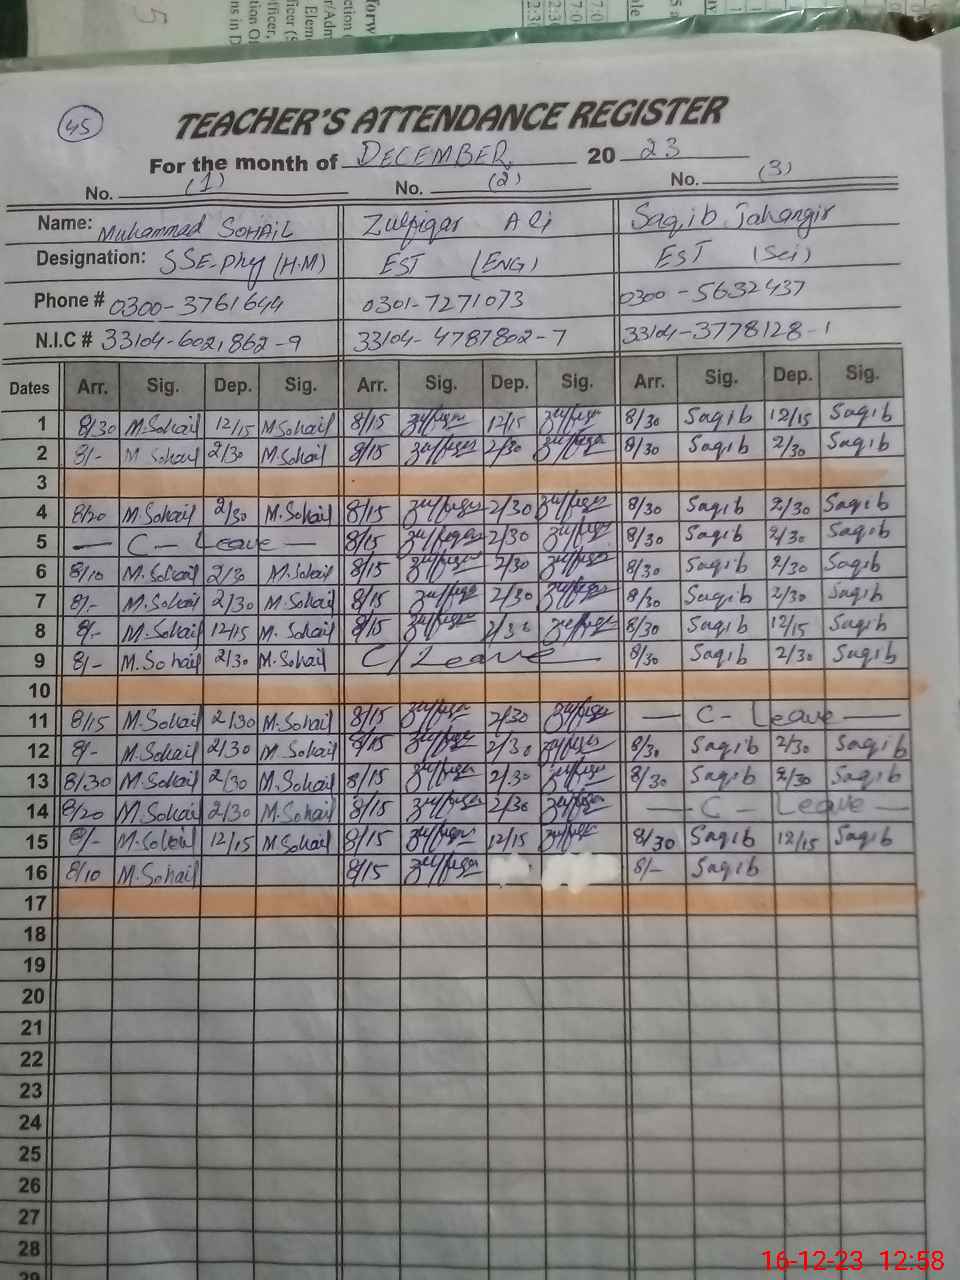 45
TEACHER'S ATTENDANCE REGISTER
For the month of DECEMBER 20 23
No. (1) No. (2) No. (3)
Name: Muhammad SOHAIL Zulfiqar Ali Saqib Jahangir
Designation: SSE-Phy (H.M) EST (ENG) EST (Sci)
Phone # 0300-3761644 0301-7271073 0300-5632437
N.I.C # 33104-6021862-9 33104-4787802-7 33104-3778128-1
Dates Arr. Sig. Dep. Sig. Arr. Sig. Dep. Sig. Arr. Sig. Dep. Sig.
1 8/30 M.Sohail 12/15 M Sohail 8/15 12/15 8/30 Saqib 12/15 Saqib
2 8/- M Sohail 2/30 M.Sohail 8/15 2/30 8/30 Saqib 2/30 Saqib
3
4 8/20 M.Sohail 2/30 M.Sohail 8/15 2/30 8/30 Saqib 2/30 Saqib
5 — C - Leave — 8/15 2/30 8/30 Saqib 2/30 Saqib
6 8/10 M.Sohail 2/30 M.Sohail 8/15 2/30 8/30 Saqib 2/30 Saqib
7 8/- M.Sohail 2/30 M.Sohail 8/15 2/30 8/30 Saqib 2/30 Saqib
8 8/- M.Sohail 12/15 M. Sohail 8/15 2/30 8/30 Saqib 12/15 Saqib
9 8/- M.Sohail 2/30 M.Sohail C/Leave 8/30 Saqib 2/30 Saqib
10
11 8/15 M.Sohail 2/30 M.Sohail 8/15 2/30 — C - Leave —
12 8/- M.Sohail 2/30 M.Sohail 8/15 2/30 8/30 Saqib 2/30 Saqib
13 8/30 M.Sohail 2/30 M.Sohail 8/15 2/30 8/30 Saqib 2/30 Saqib
14 8/20 M.Sohail 2/30 M.Sohail 8/15 2/30 — C - Leave —
15 8/- M.Sohail 12/15 M Sohail 8/15 12/15 8/30 Saqib 12/15 Saqib
16 8/10 M.Sohail 8/15 8/- Saqib
17
18
19
20
21
22
23
24
25
26
27
28
29
16-12-23 12:58